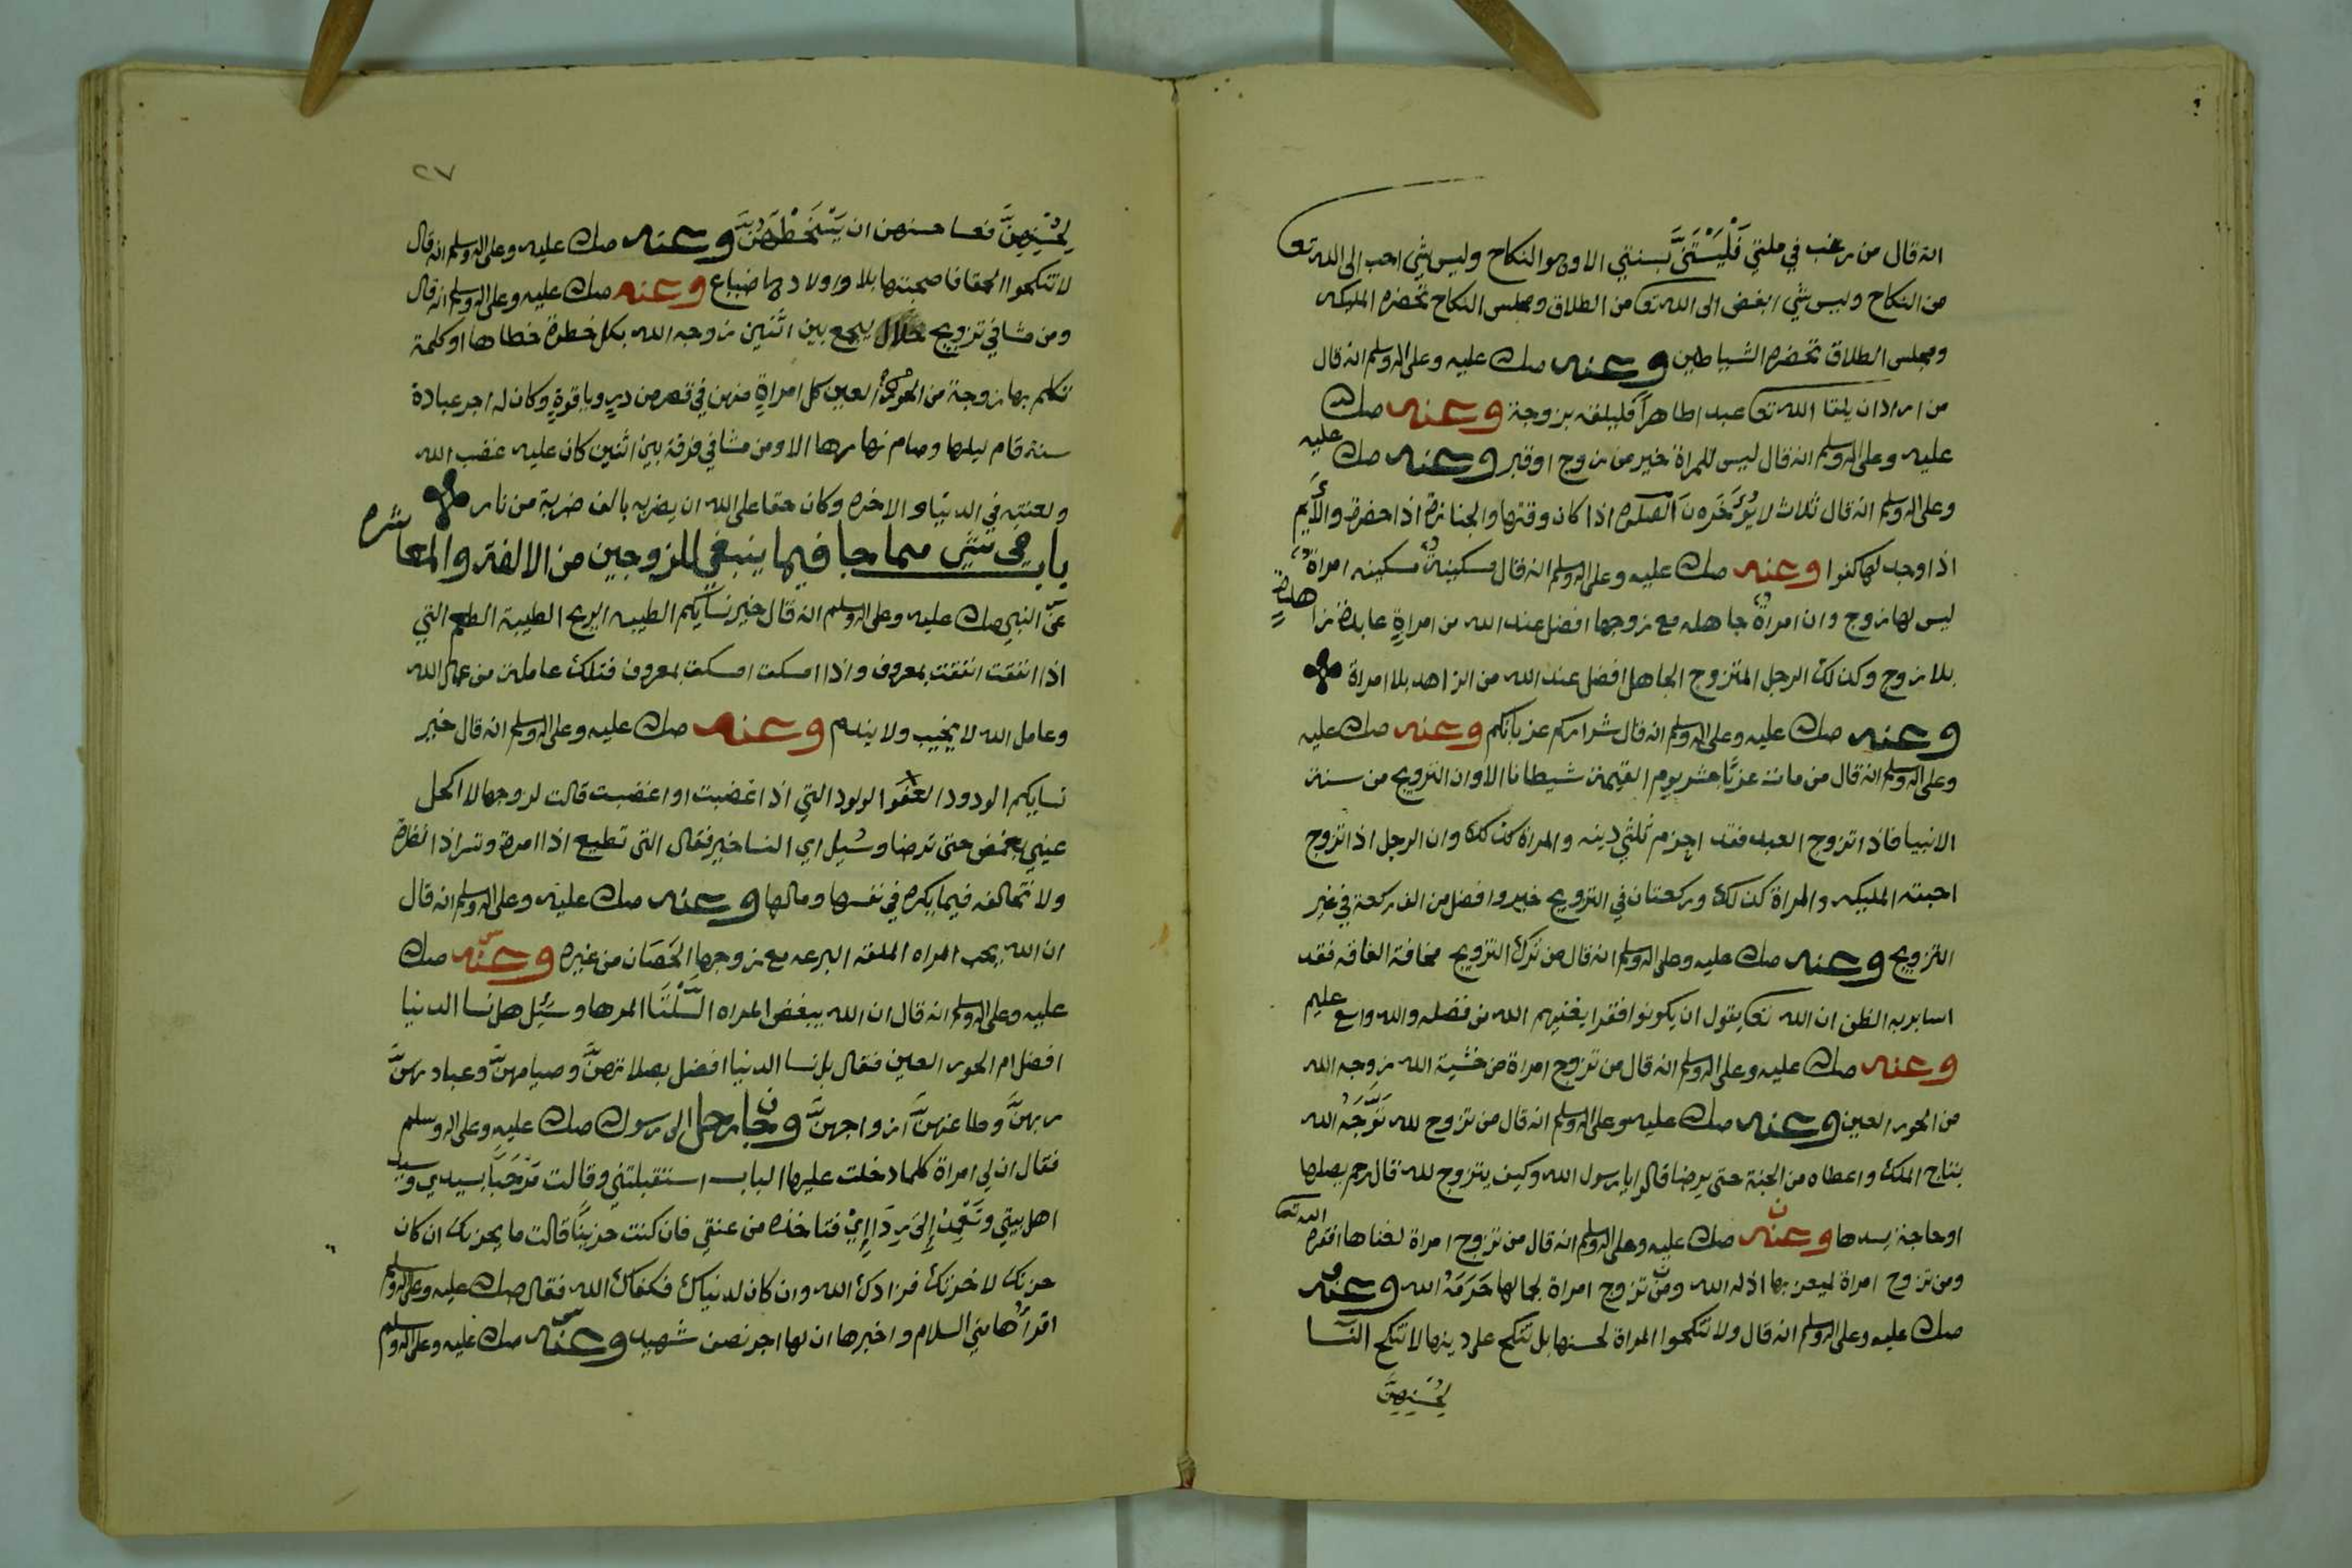 انه قال من رغب في ملتي فَلْيَسْتَنَّ بسنتي الا وهو النكاح وليس شي احب الى الله تعا
من النكاح وليس شي ابغض الى الله تعا من الطلاق ومجلس النكاح تحضره المليكه
ومجلس الطلاق تحضره الشياطين وعنه صلى عليه وعلى اله وسلم انه قال
من اراد ان يلقا الله تعا عبد اطاهراً فليلقه بزوجة وعنه صلى
عليه وعلى اله وسلم انه قال ليس للمراة خير من زوج او قبر وعنه صلى عليه
وعلى اله وسلم انه قال ثلاث لا يُؤَخَّرن الصلوة اذا كان وقتها والجنازة اذا حضرة والأَيِّم
اذا وجد لها كفوا وعنه صلى عليه وعلى اله وسلم انه قال مسكينةٌ مسكينه امراةٌ
ليس لها زوج وان امراةً جاهله مع زوجها افضل عند الله من امراةٍ عابدة زاهدةٍ
بلا زوج وكذلك الرجل المتزوج الجاهل افضل عند الله من الزاهد بلا امراة
وعنه صلى عليه وعلى اله وسلم انه قال شراركم عزبانكم وعنه صلى عليه
وعلى اله وسلم انه قال من مات عزبًا حشر يوم القيمة شيطانا الا وان التزويج من سنة
الانبيا فاذا تزوج العبد فقد احزم ثلثي دينه والمراة كذلك وان الرجل اذا تزوج
احبته المليكه والمراة كذلك وركعتان في التزويج خير وافضل من الف ركعة في غير
التزويج وعنه صلى عليه وعلى اله وسلم انه قال من ترك التزويج مخافة الفاقه فقد
اسا بربه الظن ان الله تعا يقول ان يكونوا فقرا يغنيهم الله من فضله والله واسع عليم
وعنه صلى عليه وعلى اله وسلم انه قال من تزوج امراة من خشية الله زوجه الله
من الحور العين وعنه صلى عليه وعلى اله وسلم انه قال من تزوج لله تَوَّجَهُ الله
بتاج الملك واعطاه من الجنة حتى يرضا قالوا يا رسول الله وكيف يتزوج لله قال رحم يصلها
او حاجة يسدها وعنه صلى عليه وعلى اله وسلم انه قال من تزوج امراة لغناها افقره الله تعا
ومن تزوج امراة ليعز بها اذله الله ومن تزوج امراة لجمالها حَرَمَهُ الله وعنه
صلى عليه وعلى اله وسلم انه قال ولا تنكحوا المراة لحسنها بل تنكح على دينها لا تنكح النسا
لحُسْنِهِنَّ
٢٧
لحُسْنِهِنَّ فعسا حسنهن ان وعنه صلى عليه وعلى اله وسلم انه قال
لا تنكحوا الحمقا فا صحبتها بلا واولادها ضياع وعنه صلى عليه وعلى اله وسلم انه قال
ومن مشا في تزويج حلال يجمع بين اثنين زوجه الله بكل خطوة خطاها او كلمة
تكلم بها زوجة من الحور العين كل امراةٍ منهن في قصر من درٍ وياقوةٍ وكان له اجر عبادة
سنة قام ليلها وصام نهارها الا ومن مشا في فرقة بين اثنين كان عليه غضب الله
ولعنته في الدنيا والاخره وكان حقا على الله ان يضربه بالف ضربة من نار
باب في شي مما جا فيما ينبغي للزوجين من الالفة والمعاشره
عن النبي صلى عليه وعلى اله وسلم انه قال خير نسايكم الطيبه الريح الطيبة الطعم التي
اذا انفقت انفقت بمعروف واذا امسكت امسكت بمعروف فتلك عاملة من عمال الله
وعامل الله لا يخيب ولا يندم وعنه صلى عليه وعلى اله وسلم انه قال خير
نسايكم الودود الولود التي اذا غضبت او اغضبت قالت لزوجها لا اكحل
عيني بغمض حتى ترضا وسُيِل اي النسا خير فقال التي تطيع اذا امرة وتسر اذا نظرة
ولا تخالفه فيما يكره في نفسها ومالها وعنه صلى عليه وعلى اله وسلم انه قال
ان الله يحب المراه الملقه البرعه مع زوجها الحَصَان من غيره وعنه صلى
عليه وعلى اله وسلم انه قال ان الله يبغض المراه السَّلْتَا المرها وسُيِل هل نسا الدنيا
افضل ام الحور العين فقال بل نسا الدنيا افضل بصلاتهنَّ وصيامهنَّ وعبادتهنَّ
ربهنَّ وطاعتهنَّ ازواجهنَّ وجا رجل الى رسول صلى عليه وعلى اله وسلم
فقال ان لي امراة كلما دخلت عليها الباب استقبلتني وقالت مَرْحَبًا بسيدي وسيد
اهل بيتي وَتَعْمِدُ إِلَى رِدَاإِيْ فتاخذه من عنقي فان كنت حزينًا قالت ما يحزنك ان كان
حزنك لاخرتك فزادك الله وان كان لدنياك فكفاك الله فقال صلى عليه وعلى اله وسلم
اقراها مني السلام واخبرها ان لها اجر نصف شهيد وعنه صلى عليه وعلى اله وسلم